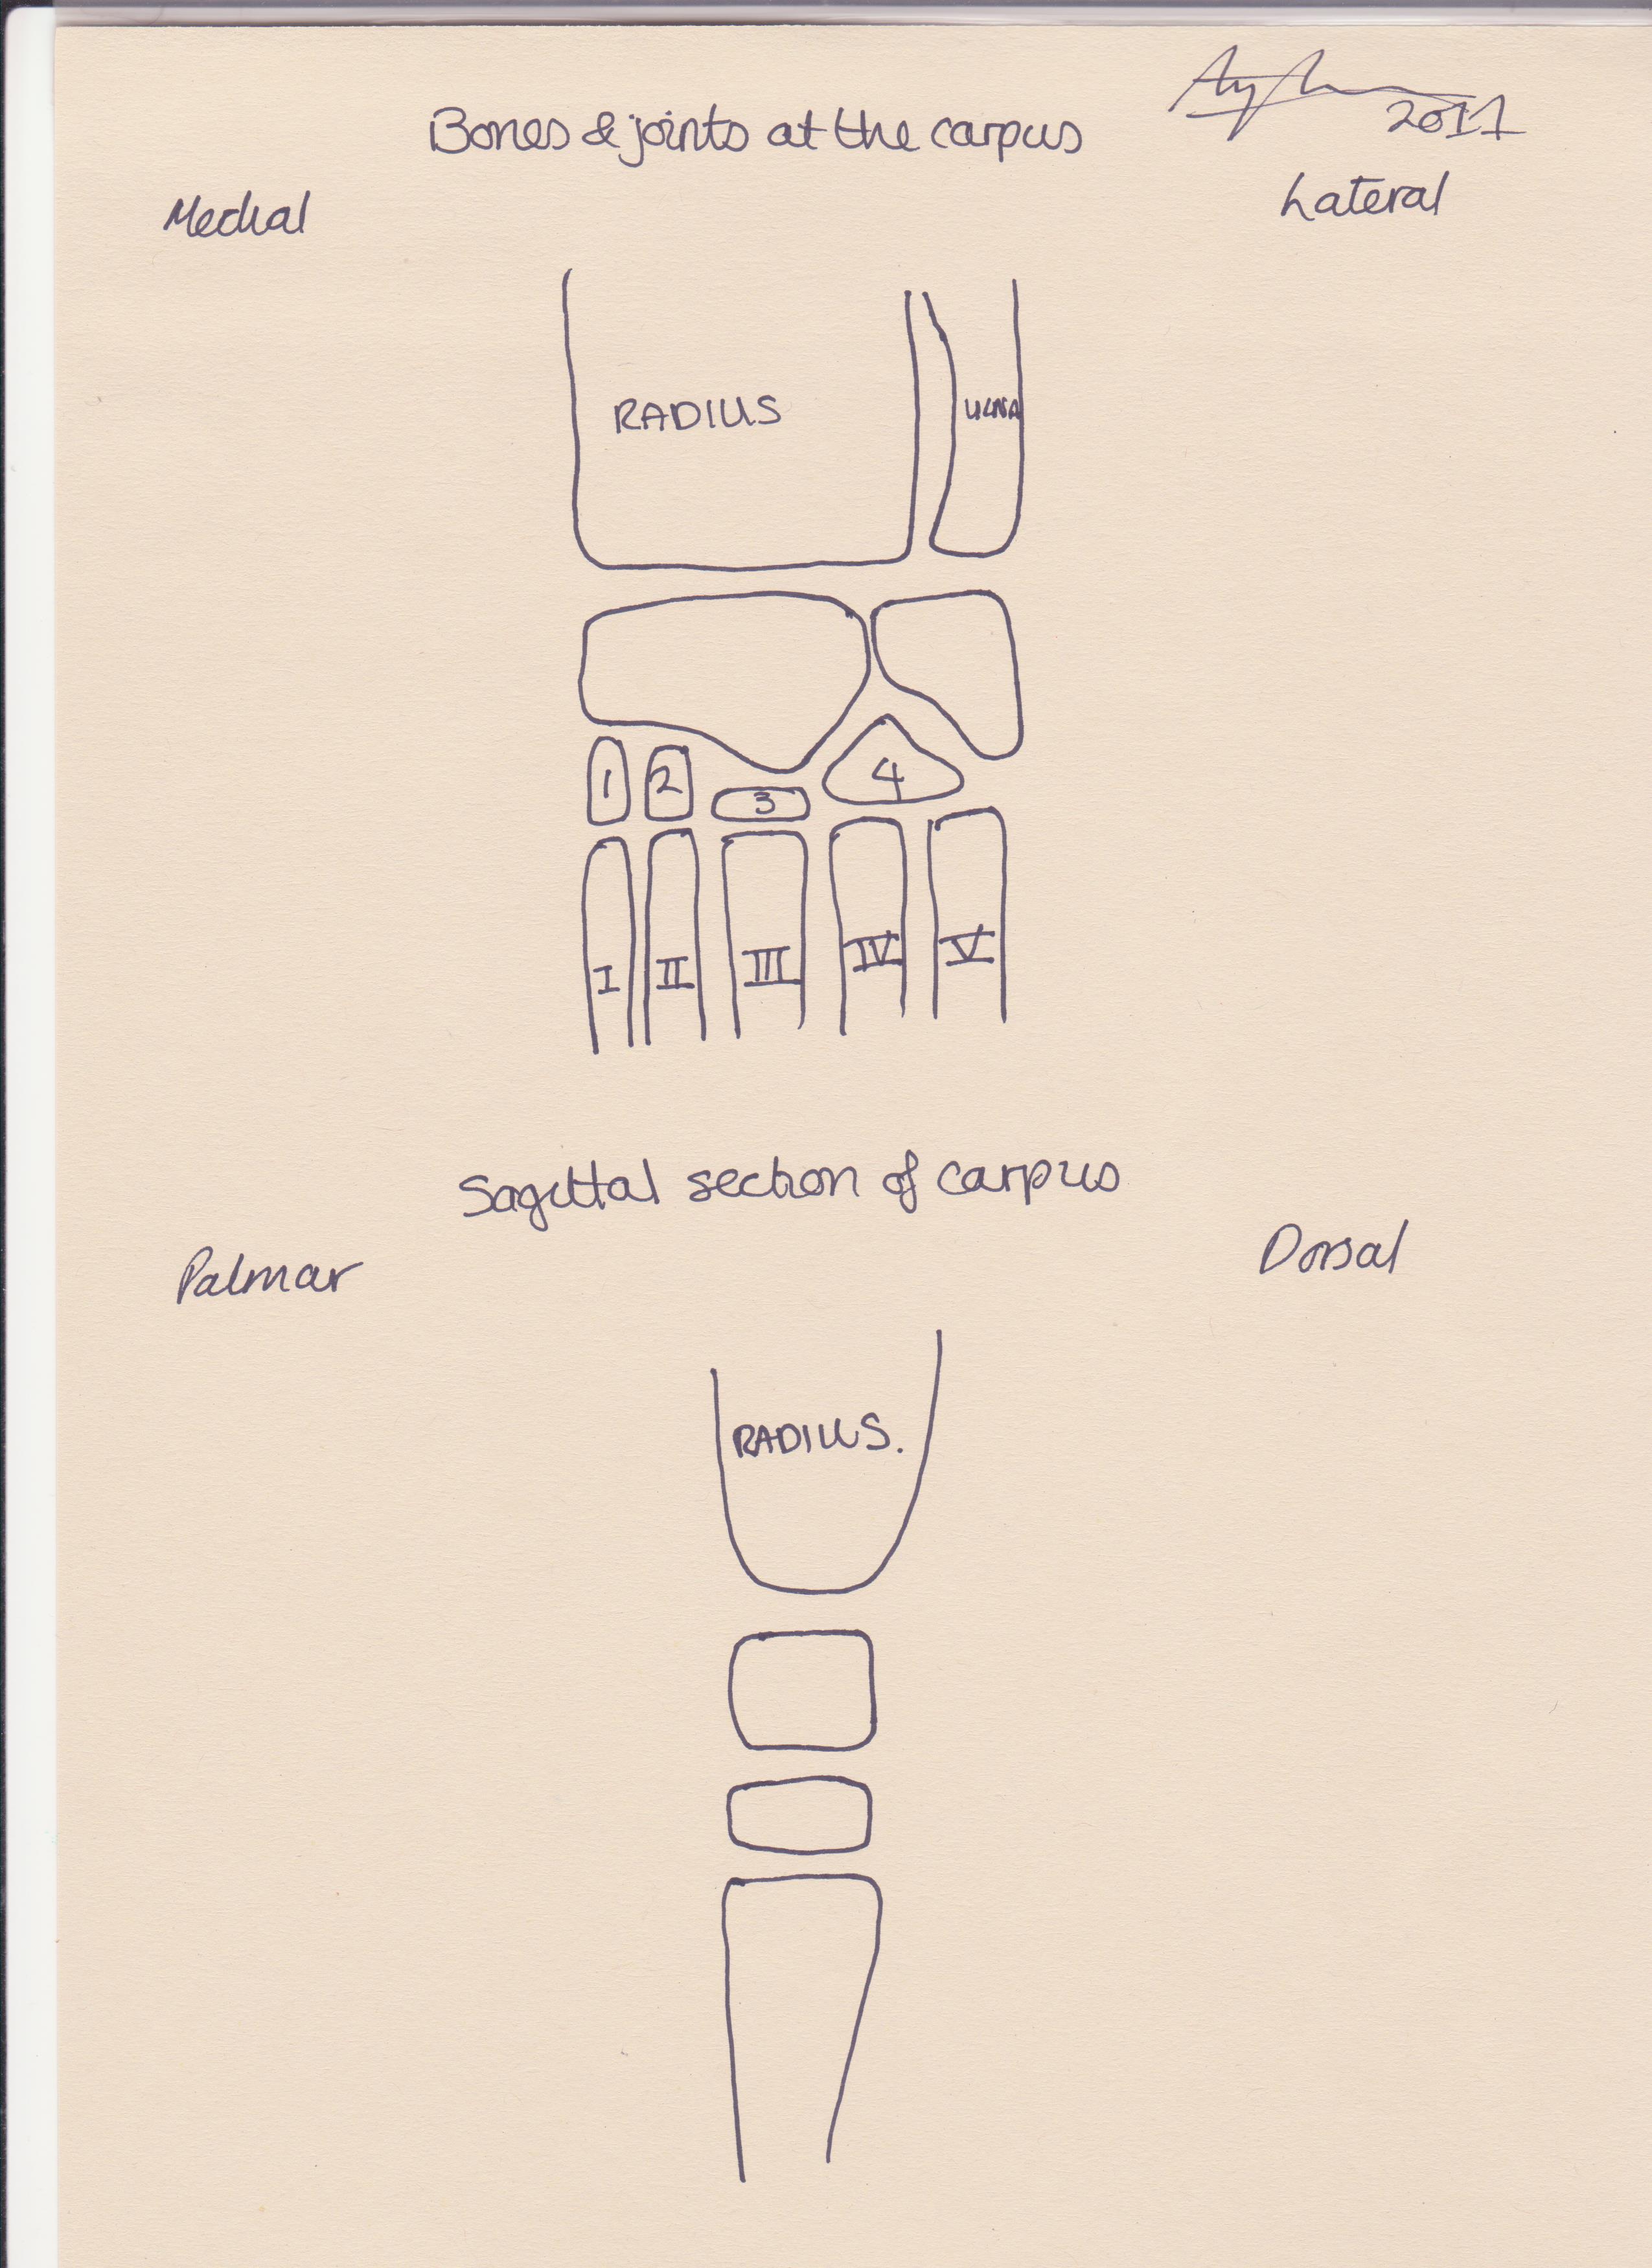 2011
Bones & joints at the carpus
Medial
Lateral
RADIUS
ULNA
1
2
3
4
I
II
III
IV
V
Sagittal section of carpus
Palmar
Dorsal
RADIUS.